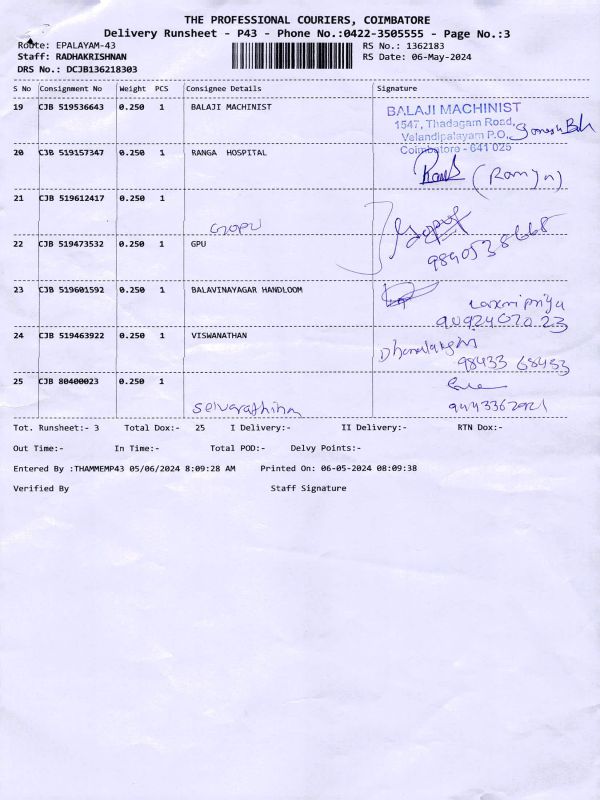 THE PROFESSIONAL COURIERS, COIMBATORE
Delivery Runsheet - P43 - Phone No.:0422-3505555 - Page No.:3
Route: EPALAYAM-43 RS No.: 1362183
Staff: RADHAKRISHNAN RS Date: 06-May-2024
DRS No.: DCJB136218303
S No Consignment No Weight PCS Consignee Details Signature
19 CJB 519536643 0.250 1 BALAJI MACHINIST
BALAJI MACHINIST
1547, Thadagam Road,
Velandipalayam P.O,
Coimbatore - 641 025
20 CJB 519157347 0.250 1 RANGA HOSPITAL
(Ramya)
21 CJB 519612417 0.250 1
GOPU
22 CJB 519473532 0.250 1 GPU
9840538668
23 CJB 519601592 0.250 1 BALAVINAYAGAR HANDLOOM
Laxmi priya
9092407023
24 CJB 519463922 0.250 1 VISWANATHAN
98433 68453
25 CJB 80400023 0.250 1
Selvarathina
Tot. Runsheet:- 3 Total Dox:- 25 I Delivery:- II Delivery:- RTN Dox:-
Out Time:- In Time:- Total POD:- Delvy Points:-
Entered By :THAMMEMP43 05/06/2024 8:09:28 AM Printed On: 06-05-2024 08:09:38
Verified By Staff Signature